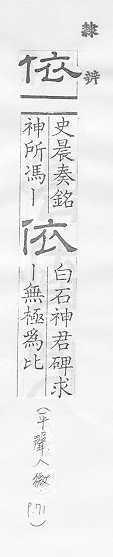 隸辨
依
史晨奏銘
神所馮丨
依
白石神君碑求
丨無極爲比
(平聲八微 P.71)